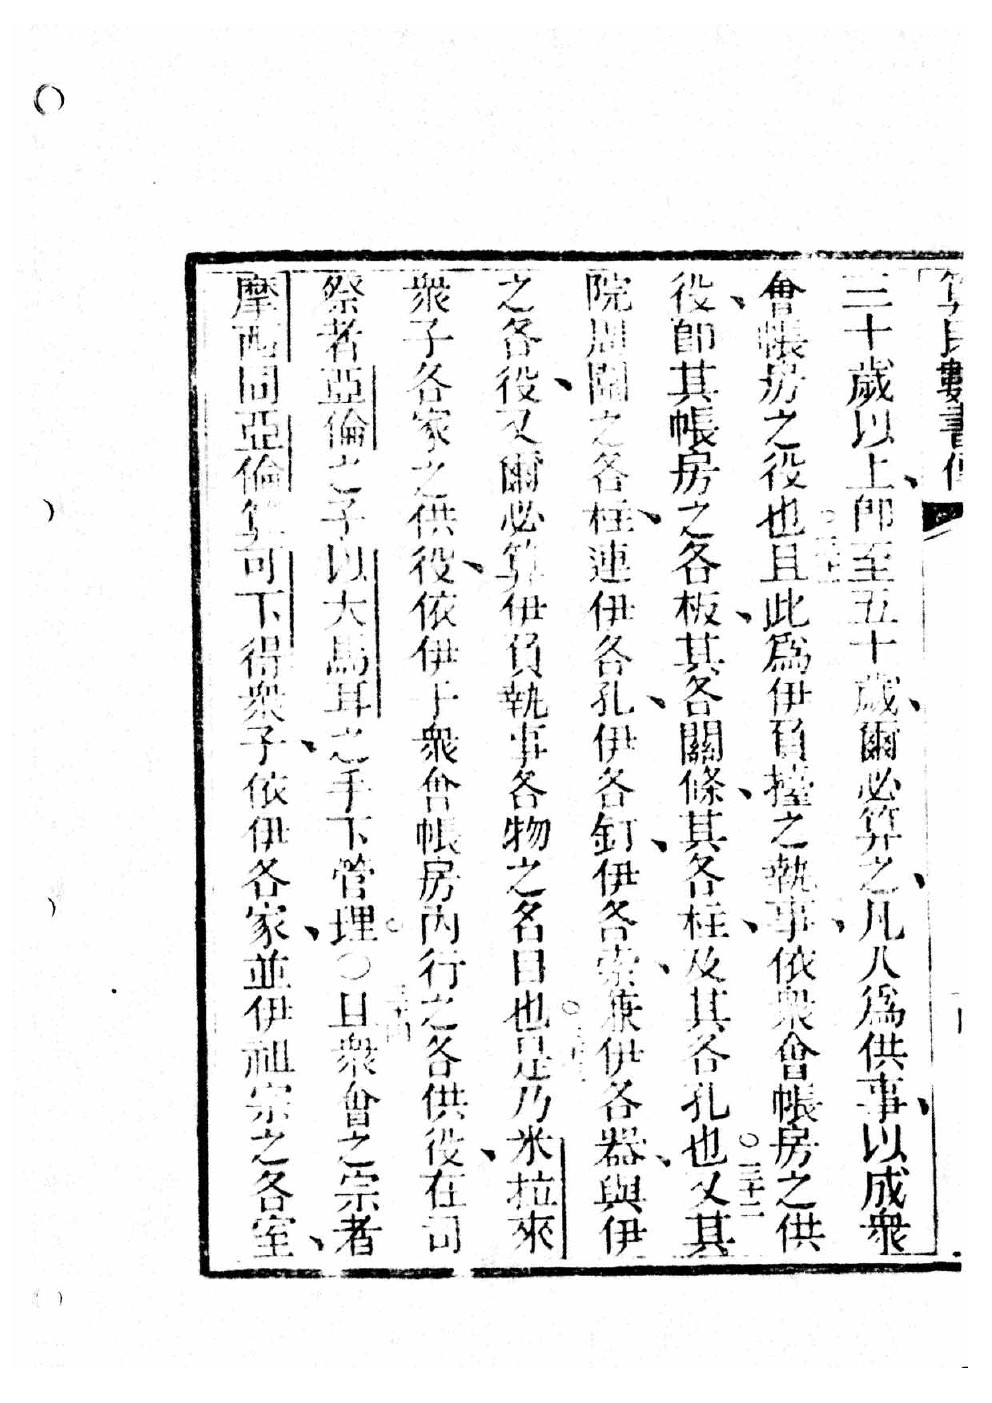 算民數書傳
三十歲以上、卽至五十歲、爾必算之、凡人爲供事、以成衆
會帳房之役也○三十一且此爲伊負擡之執事、依衆會帳房之供
役、卽其帳房之各板、其各關條、其各柱、及其各孔也○三十二又其
院周圍之各柱、連伊各孔、伊各釘、伊各索、兼伊各器、與伊
之各役、又爾必算伊負執事各物之名目也○三十三是乃米拉來
衆子各家之供役、依伊于衆會帳房內行之各供役、在司
祭者亞倫之子以大馬耳之手下管理○三十四○且衆會之宗者
摩西同亞倫算可下得衆子、依伊各家、並伊祖宗之各室、